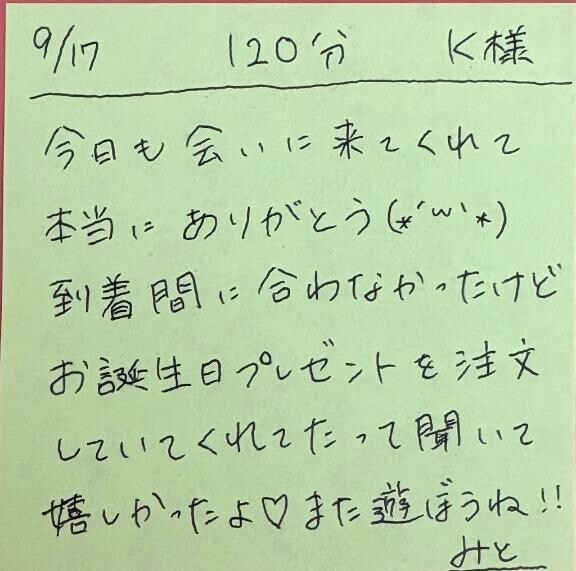 9/17 120分 K様
今日も会いに来てくれて
本当にありがとう(*´ω`*)
到着間に合わなかったけど
お誕生日プレゼントを注文
していてくれてたって聞いて
嬉しかったよ♡また遊ぼうね!!
みと